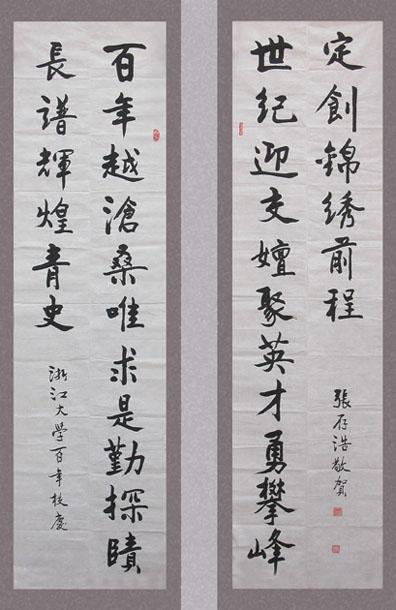 百年越滄桑唯求是勤探賾
長譜輝煌青史
浙江大學百年校慶
世紀迎交嬗聚英才勇攀峰
定創錦綉前程
張存浩敬賀